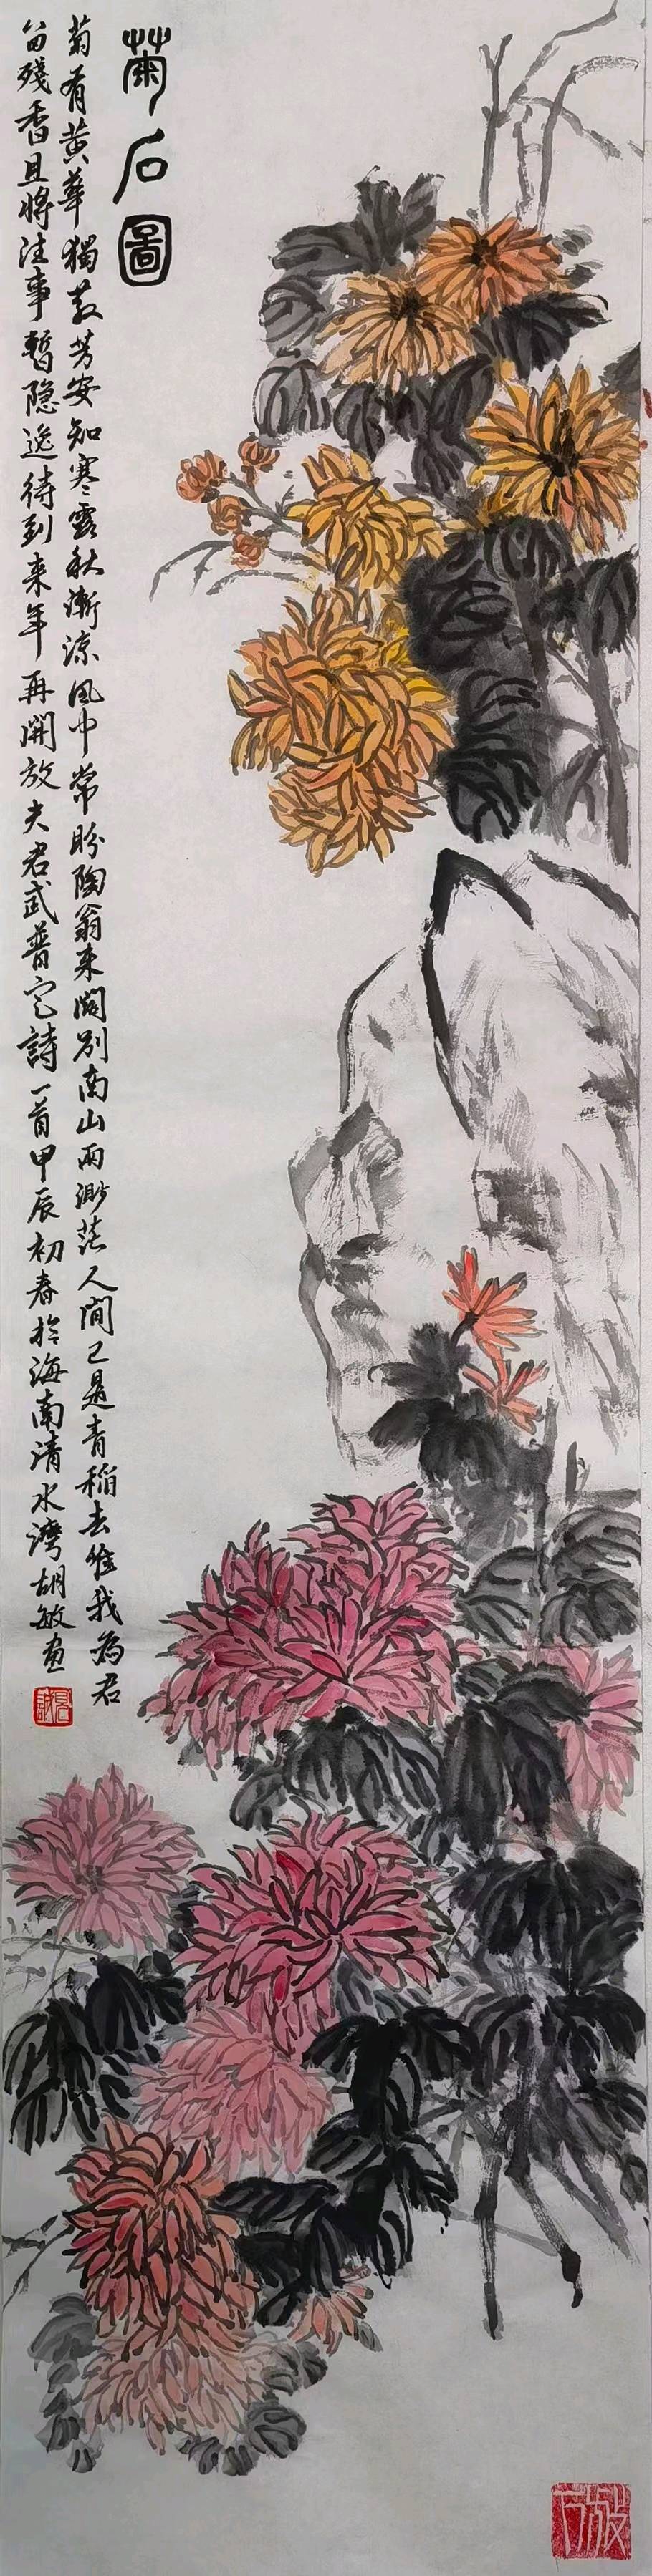 菊石圖
菊有黄華獨散芳安知寒露秋漸凉風中常盼陶翁来闊别南山两渺茫人間已是青稲去惟我為君
留殘香且將往事暫隐逸待到来年再開放夫君武普定詩一首甲辰初春於海南清水灣胡敏畫